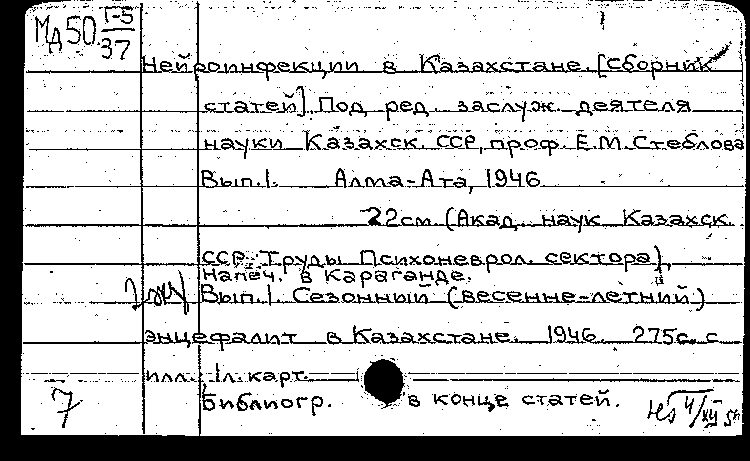 МД50 Т-5/37
Нейроинфекции в Казахстане. [Сборник
статей]. Под ред. заслуж. деятеля
науки Казахск. ССР, проф. Е.М. Стеблова
Вып.1. Алма-Ата, 1946
22см. (Акад. наук Казахск.
ССР. Труды Психоневрол. сектора),
Напеч. в Караганде.
Вып.1. Сезонный (весенне-летний)
энцефалит в Казахстане. 1946. 275с. с
илл. 1л. карт.
Библиогр. в конце статей.
7